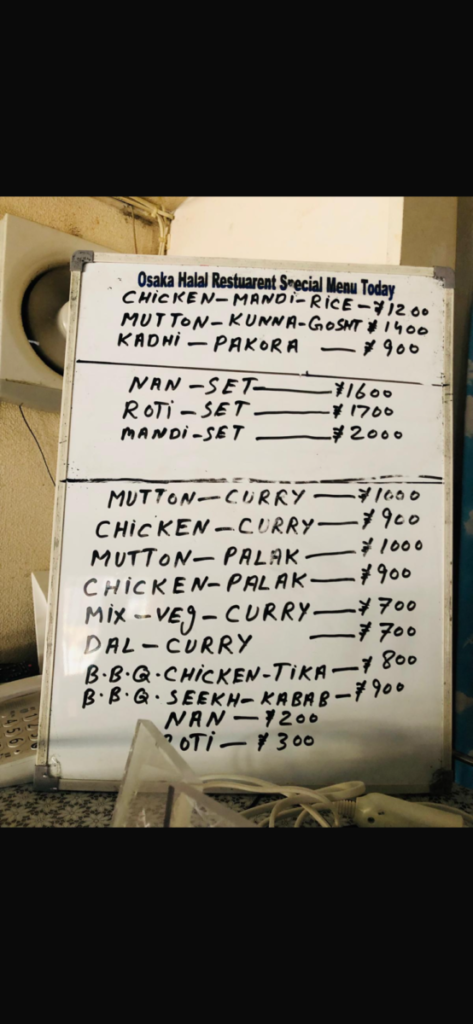 Osaka Halal Restuarent Special Menu Today
CHICKEN-MANDI-RICE-¥1200
MUTTON-KUNNA-GOSHT ¥1400
KADHI-PAKORA — ¥900
NAN-SET — ¥1600
ROTI-SET — ¥1700
MANDI-SET — ¥2000
MUTTON-CURRY — ¥1000
CHICKEN-CURRY — ¥900
MUTTON-PALAK — ¥1000
CHICKEN-PALAK — ¥900
MIX-VEG-CURRY — ¥700
DAL-CURRY — ¥700
B.B.Q.CHICKEN-TIKA — ¥800
B.B.Q.SEEKH-KABAB — ¥900
NAN — ¥200
ROTI — ¥300